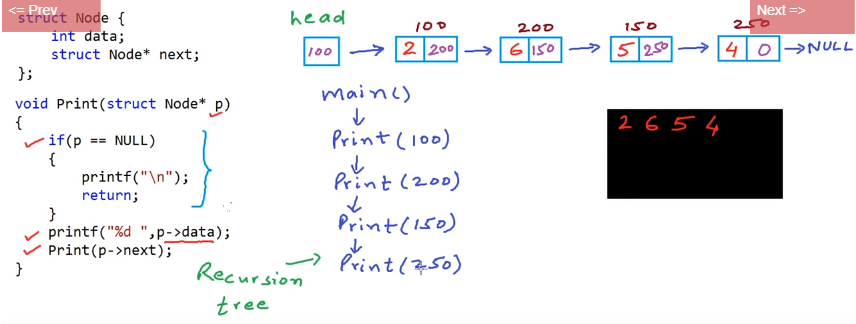 <= Prev
Next =>
struct Node {
int data;
struct Node* next;
};
void Print(struct Node* p)
{
if(p == NULL)
{
printf("\n");
return;
}
printf("%d ",p->data);
Print(p->next);
}
head
100 200 150 250
100 2 200 6 150 5 250 4 0 NULL
main()
Print(100)
Print(200)
Print(150)
Print(250)
Recursion
tree
2 6 5 4